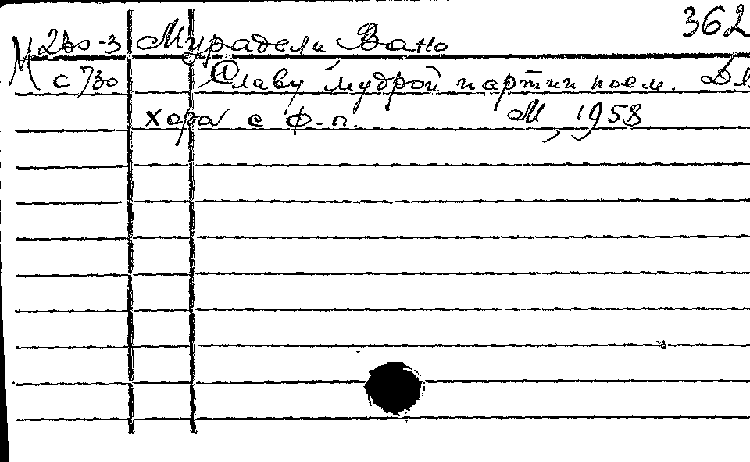 362
М 2во-3 Мурадели Вано
с 730 Славу мудрой партии поем. Дл
хора с ф-п. М, 1958